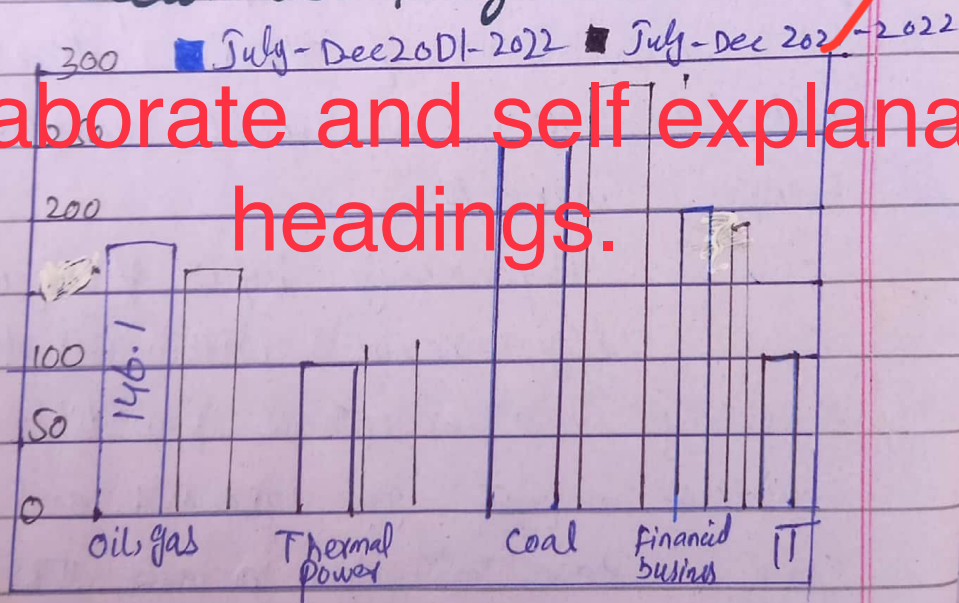 July-Dec20D1-2022 July-Dec 202 -2022
300
aborate and self explana
200
headings.
146.1
100
50
0
oil, gas Thermal Power Coal financid busines IT